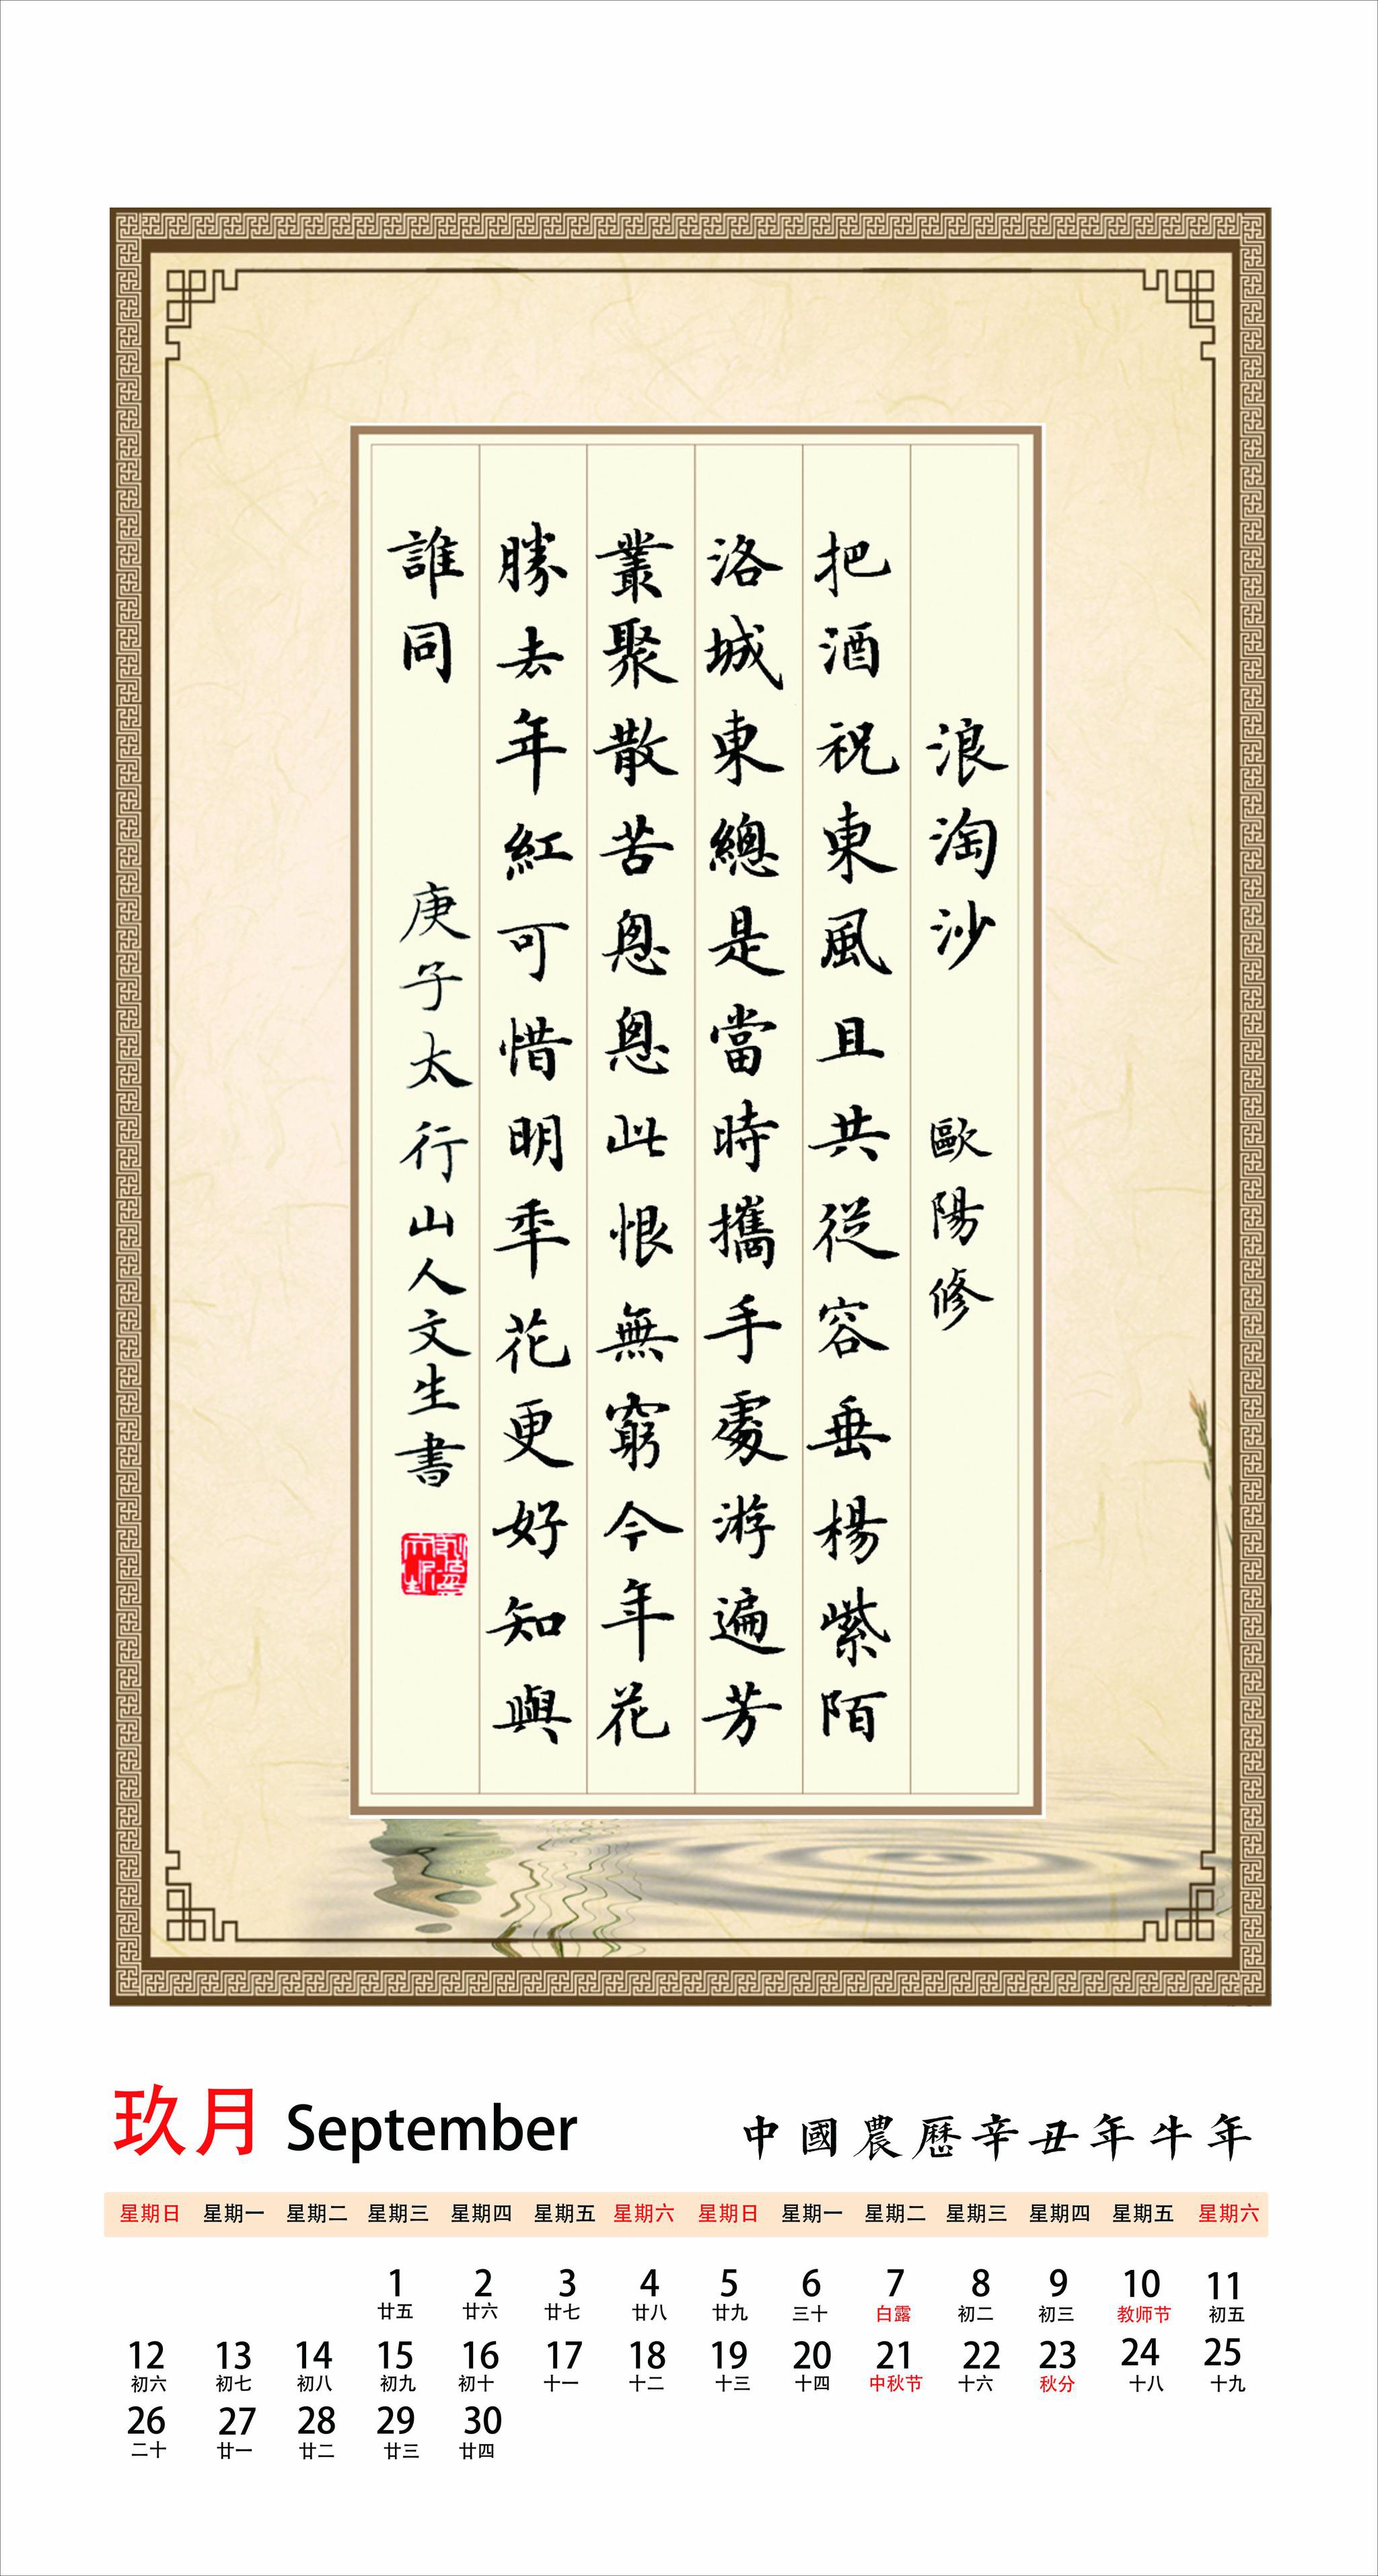 浪淘沙 歐陽修
把酒祝東風且共從容垂楊紫陌
洛城東總是當時攜手處游遍芳
叢聚散苦悤悤此恨無窮今年花
勝去年紅可惜明年花更好知與
誰同 庚子太行山人文生書
玖月 September 中國農曆辛丑年牛年
星期日 星期一 星期二 星期三 星期四 星期五 星期六 星期日 星期一 星期二 星期三 星期四 星期五 星期六
1 2 3 4 5 6 7 8 9 10 11
廿五 廿六 廿七 廿八 廿九 三十 白露 初二 初三 教师节 初五
12 13 14 15 16 17 18 19 20 21 22 23 24 25
初六 初七 初八 初九 初十 十一 十二 十三 十四 中秋节 十六 秋分 十八 十九
26 27 28 29 30
二十 廿一 廿二 廿三 廿四